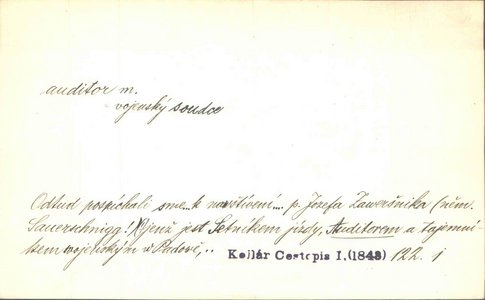 auditor m.
vojenský soudce
Odtud pospíchali sme...k navštívení... p. Jozefa Zaweršnika (něm.
Sauerschnigg!) jenž jest Setníkem jízdy, Auditorem a tajemní-
kem wojenským w Padově,..
Kollár Cestopis I.(1843) 122. j